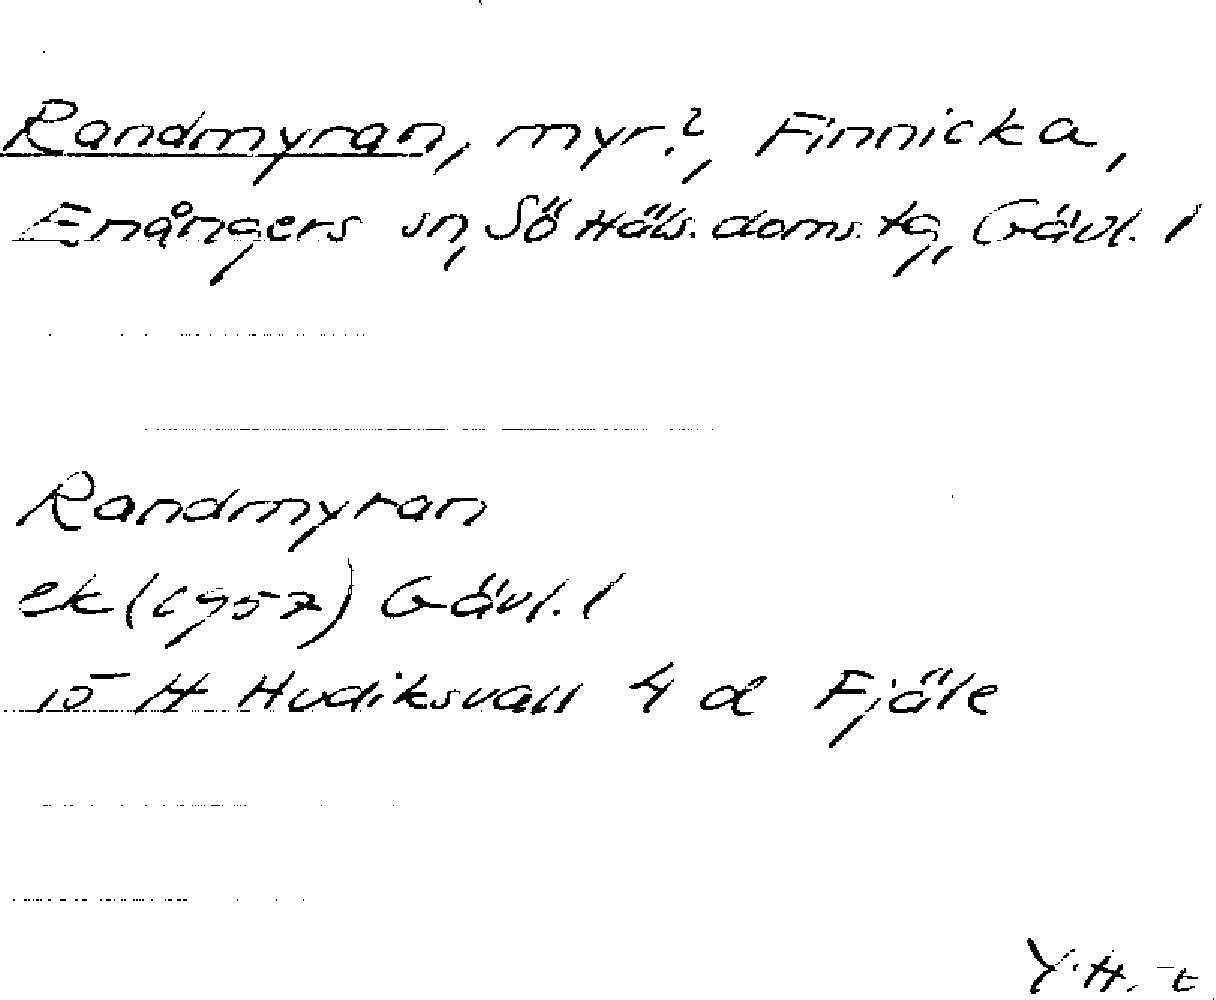 Randmyran, myr?, Finnicka,
Enångers sn, Sö Häls. doms. tg, Gävl. l
Randmyran
ek (1957) Gävl. l
15 H Hudiksvall 4 d Fjäle
Y. H.-t